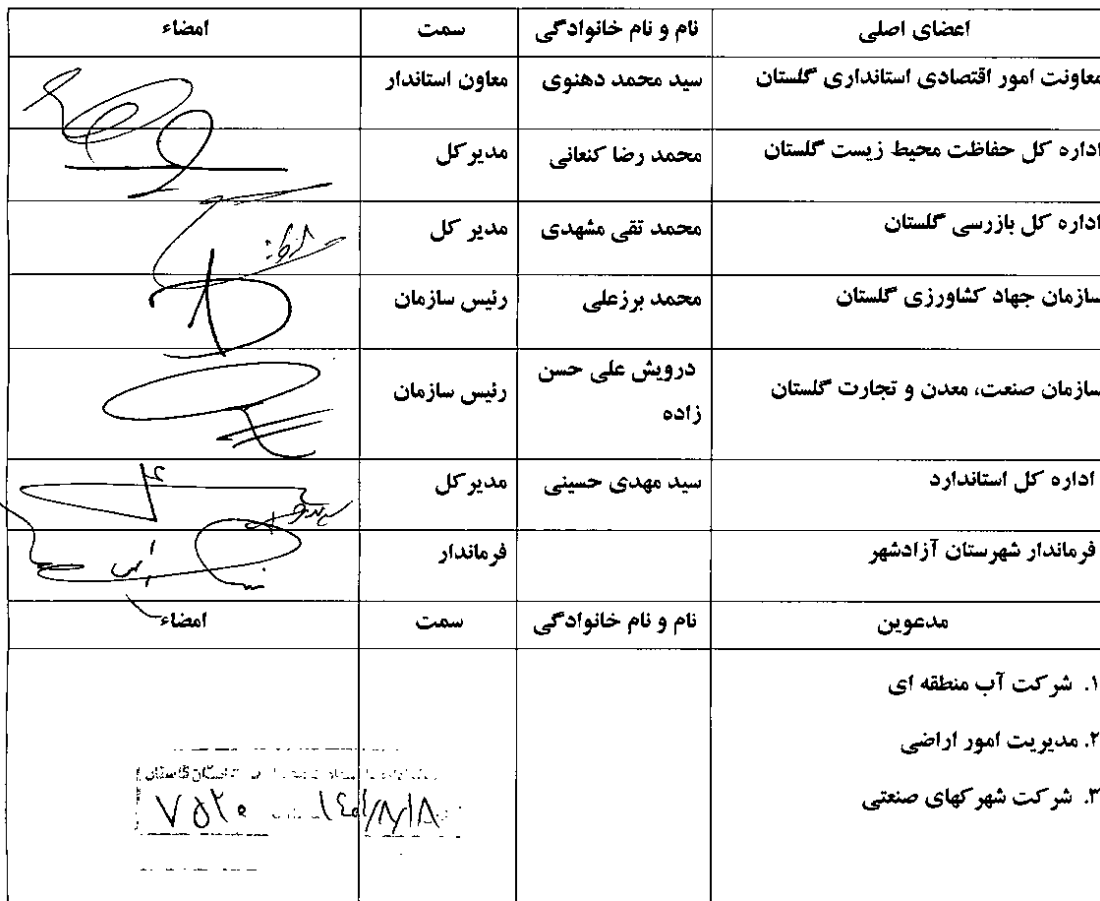 اعضای اصلی	نام و نام خانوادگی	سمت	امضاء
معاونت امور اقتصادی استانداری گلستان	سید محمد دهنوی	معاون استاندار
اداره کل حفاظت محیط زیست گلستان	محمد رضا کنعانی	مدیر کل
اداره کل بازرسی گلستان	محمد تقی مشهدی	مدیر کل
سازمان جهاد کشاورزی گلستان	محمد برزعلی	رئیس سازمان
سازمان صنعت، معدن و تجارت گلستان	درویش علی حسن	رئیس سازمان
زاده
اداره کل استاندارد	سید مهدی حسینی	مدیر کل
فرماندار شهرستان آزادشهر	فرماندار
مدعوین	نام و نام خانوادگی	سمت	امضاء
۱. شرکت آب منطقه ای
۲. مدیریت امور اراضی
۳. شرکت شهرکهای صنعتی
۷۵۲۰